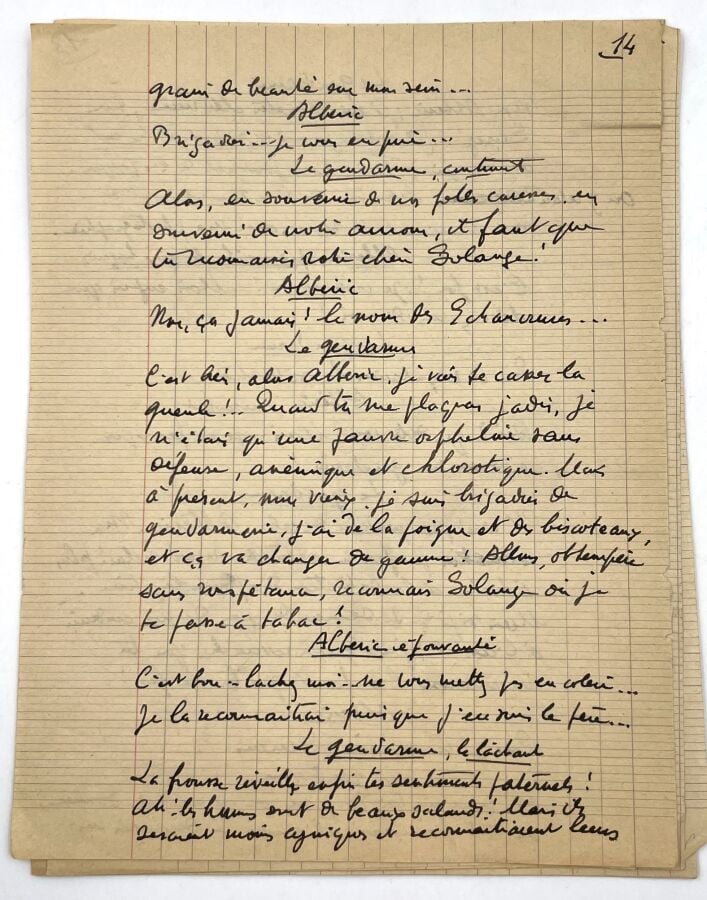 14
grain de beauté sur mon sein...
Alberic
Brigadier... je vous en prie...
Le gendarme, continuant
Alors, en souvenir de nos folles caresses, en
souvenir de notre amour, il faut que
tu reconnaisses notre chère Solange!
Alberic
Non, ça jamais! le nom des Echancrures...
Le gendarme
C'est bien, alors Alberic, je vais te casser la
gueule!.. Quand tu me plaquas jadis, je
n'étais qu'une pauvre orpheline sans
défense, anémique et chlorotique. Mais
à présent, mon vieux, je suis brigadier de
gendarmerie, j'ai de la poigne et des biscoteaux,
et ça va changer de gamme! Allons, obtempère
sans rouspétance, reconnais Solange ou je
te passe à tabac!
Alberic épouvanté
C'est bon.. lachez moi... ne vous mettez pas en colère...
Je la reconnaitrai puisque j'en suis le père...
Le gendarme, le lâchant
La frousse réveille enfin tes sentiments paternels!
Ah! les hommes sont de beaux salauds! Mais ils
seraient moins cyniques et reconnaitraient leurs